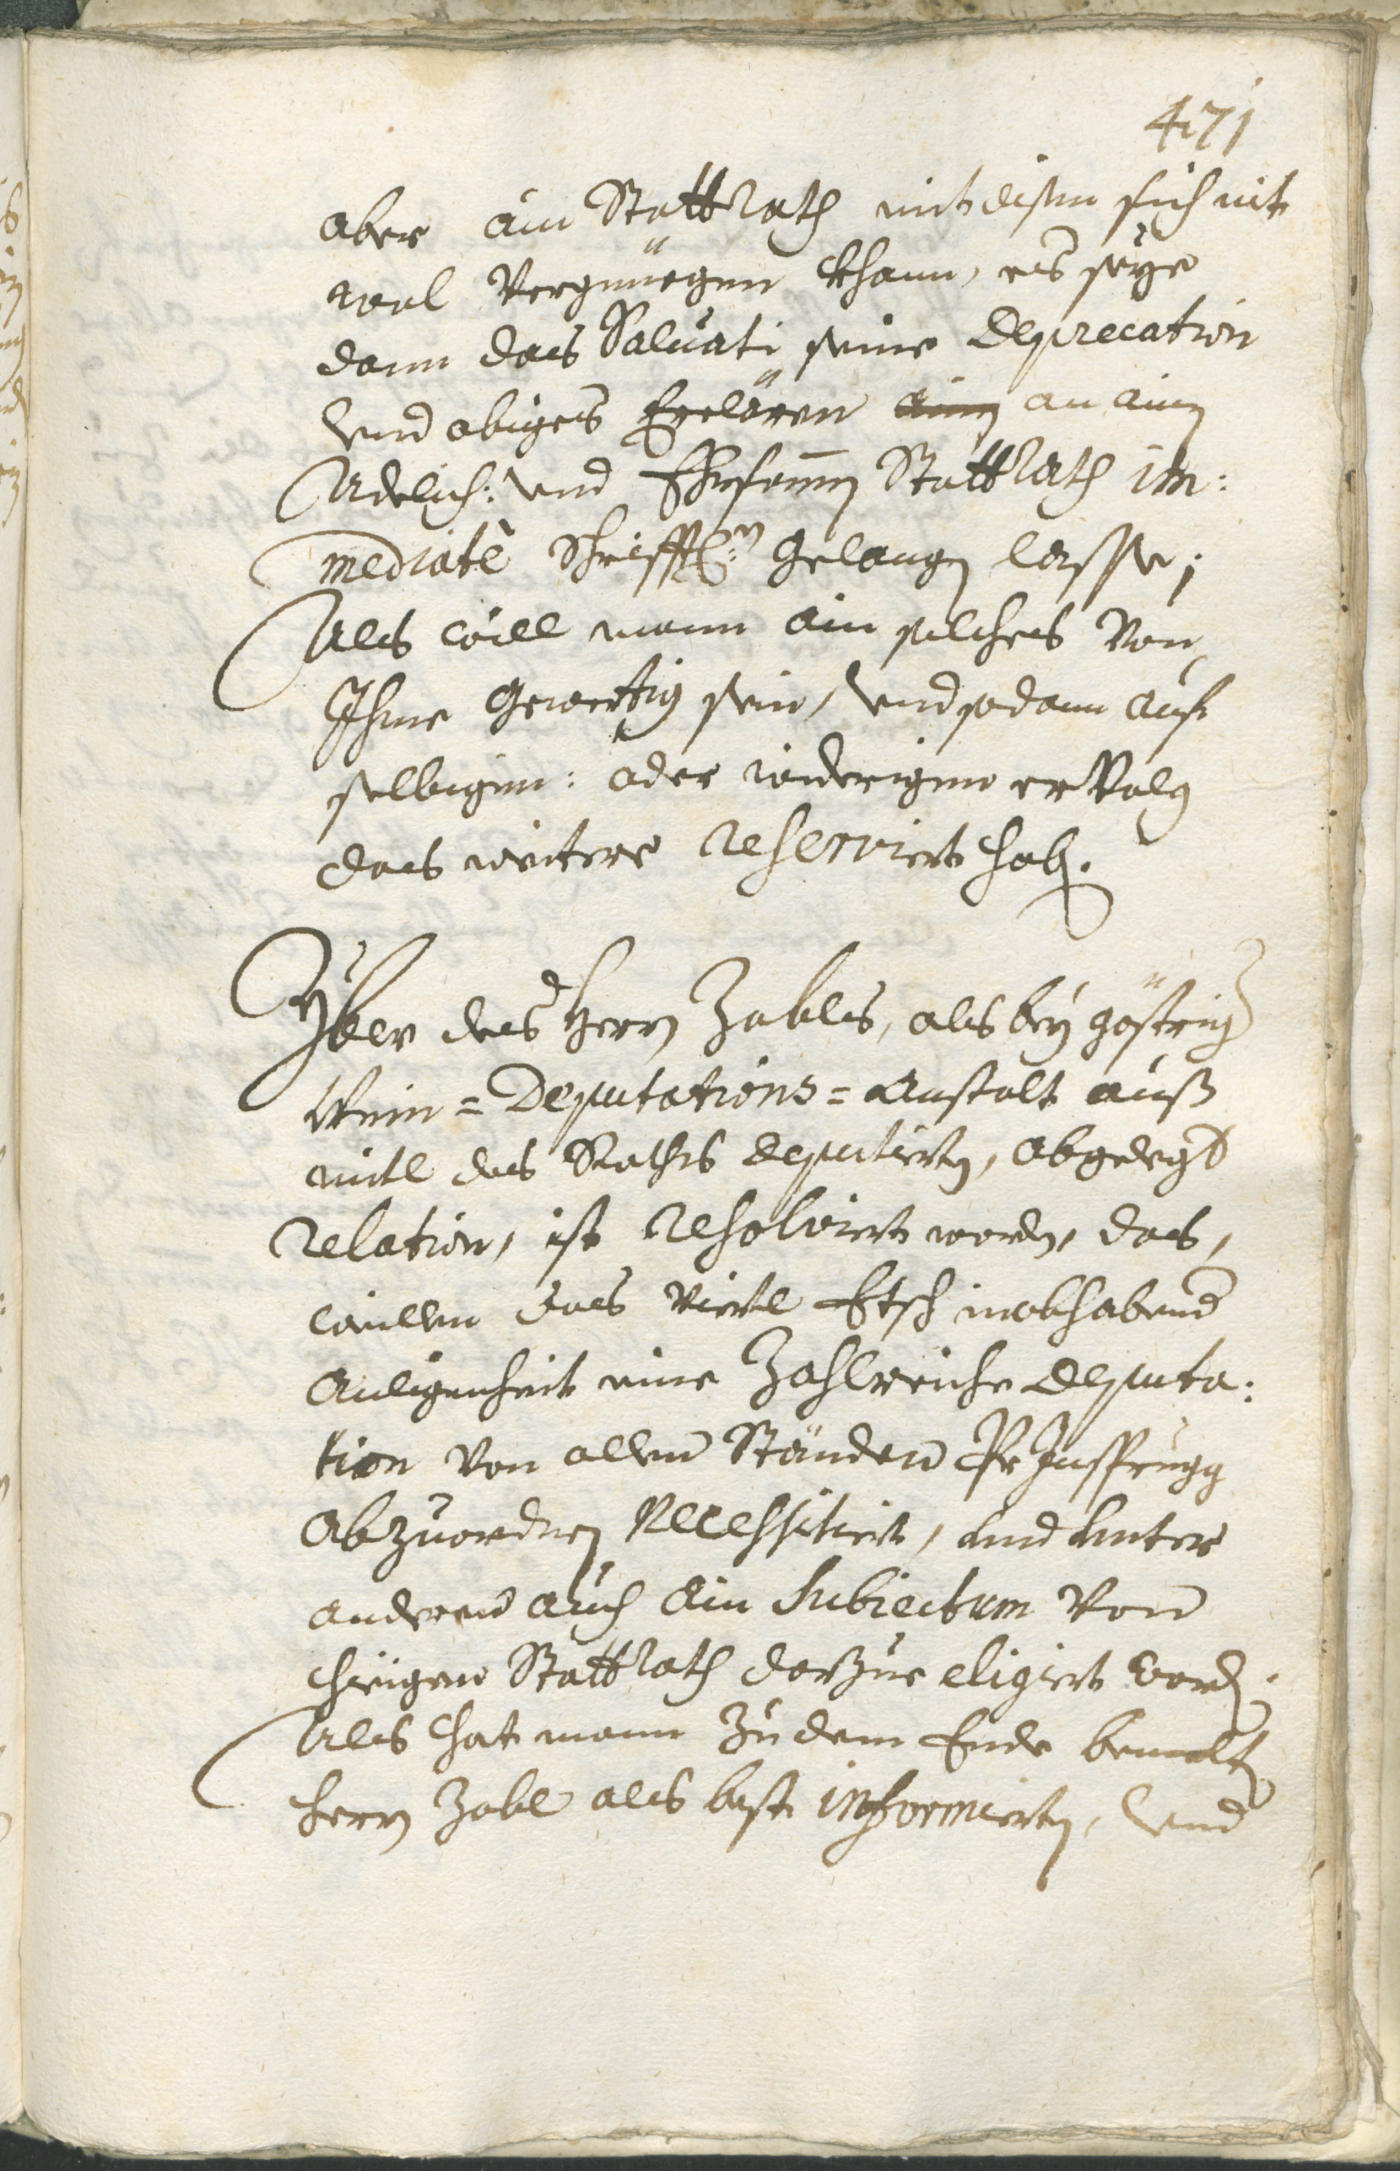 471
aber ain Stattrath mit disem sich nit
wol vergnüegen khann, es seye
dann das Saluati seine Deprecation
vnd obiges Erclären an ain
Adelich: vnd Ehrsamen Stattrath im:
mediatè schrifftl: gelangen lasse;
Als will mann ain solches von
Ihme gewertig sein, vnd sodann auf
selbigen: oder widerigen ervolg
das weitere reserviert haben.
Yber des Herrn Zobls, als bey göstrig
Wein=Deputations=Anstalt auß
mitl des Raths deputierten, abgelegt
relation, ist resolviert worden, das,
weillen das Viertl Etsch inobhabend
Anligenheit eine Zahlreiche Deputa:
tion von allen Ständen Pr Insprugg
abzuordnen necessitiert, und unter
anderen auch ain Subiectum von
hiesigen Stattrath darzue eligiert worden.
Als hat mann zu dem Ende bemelten
Herrn Zobl als best informierten, vnd